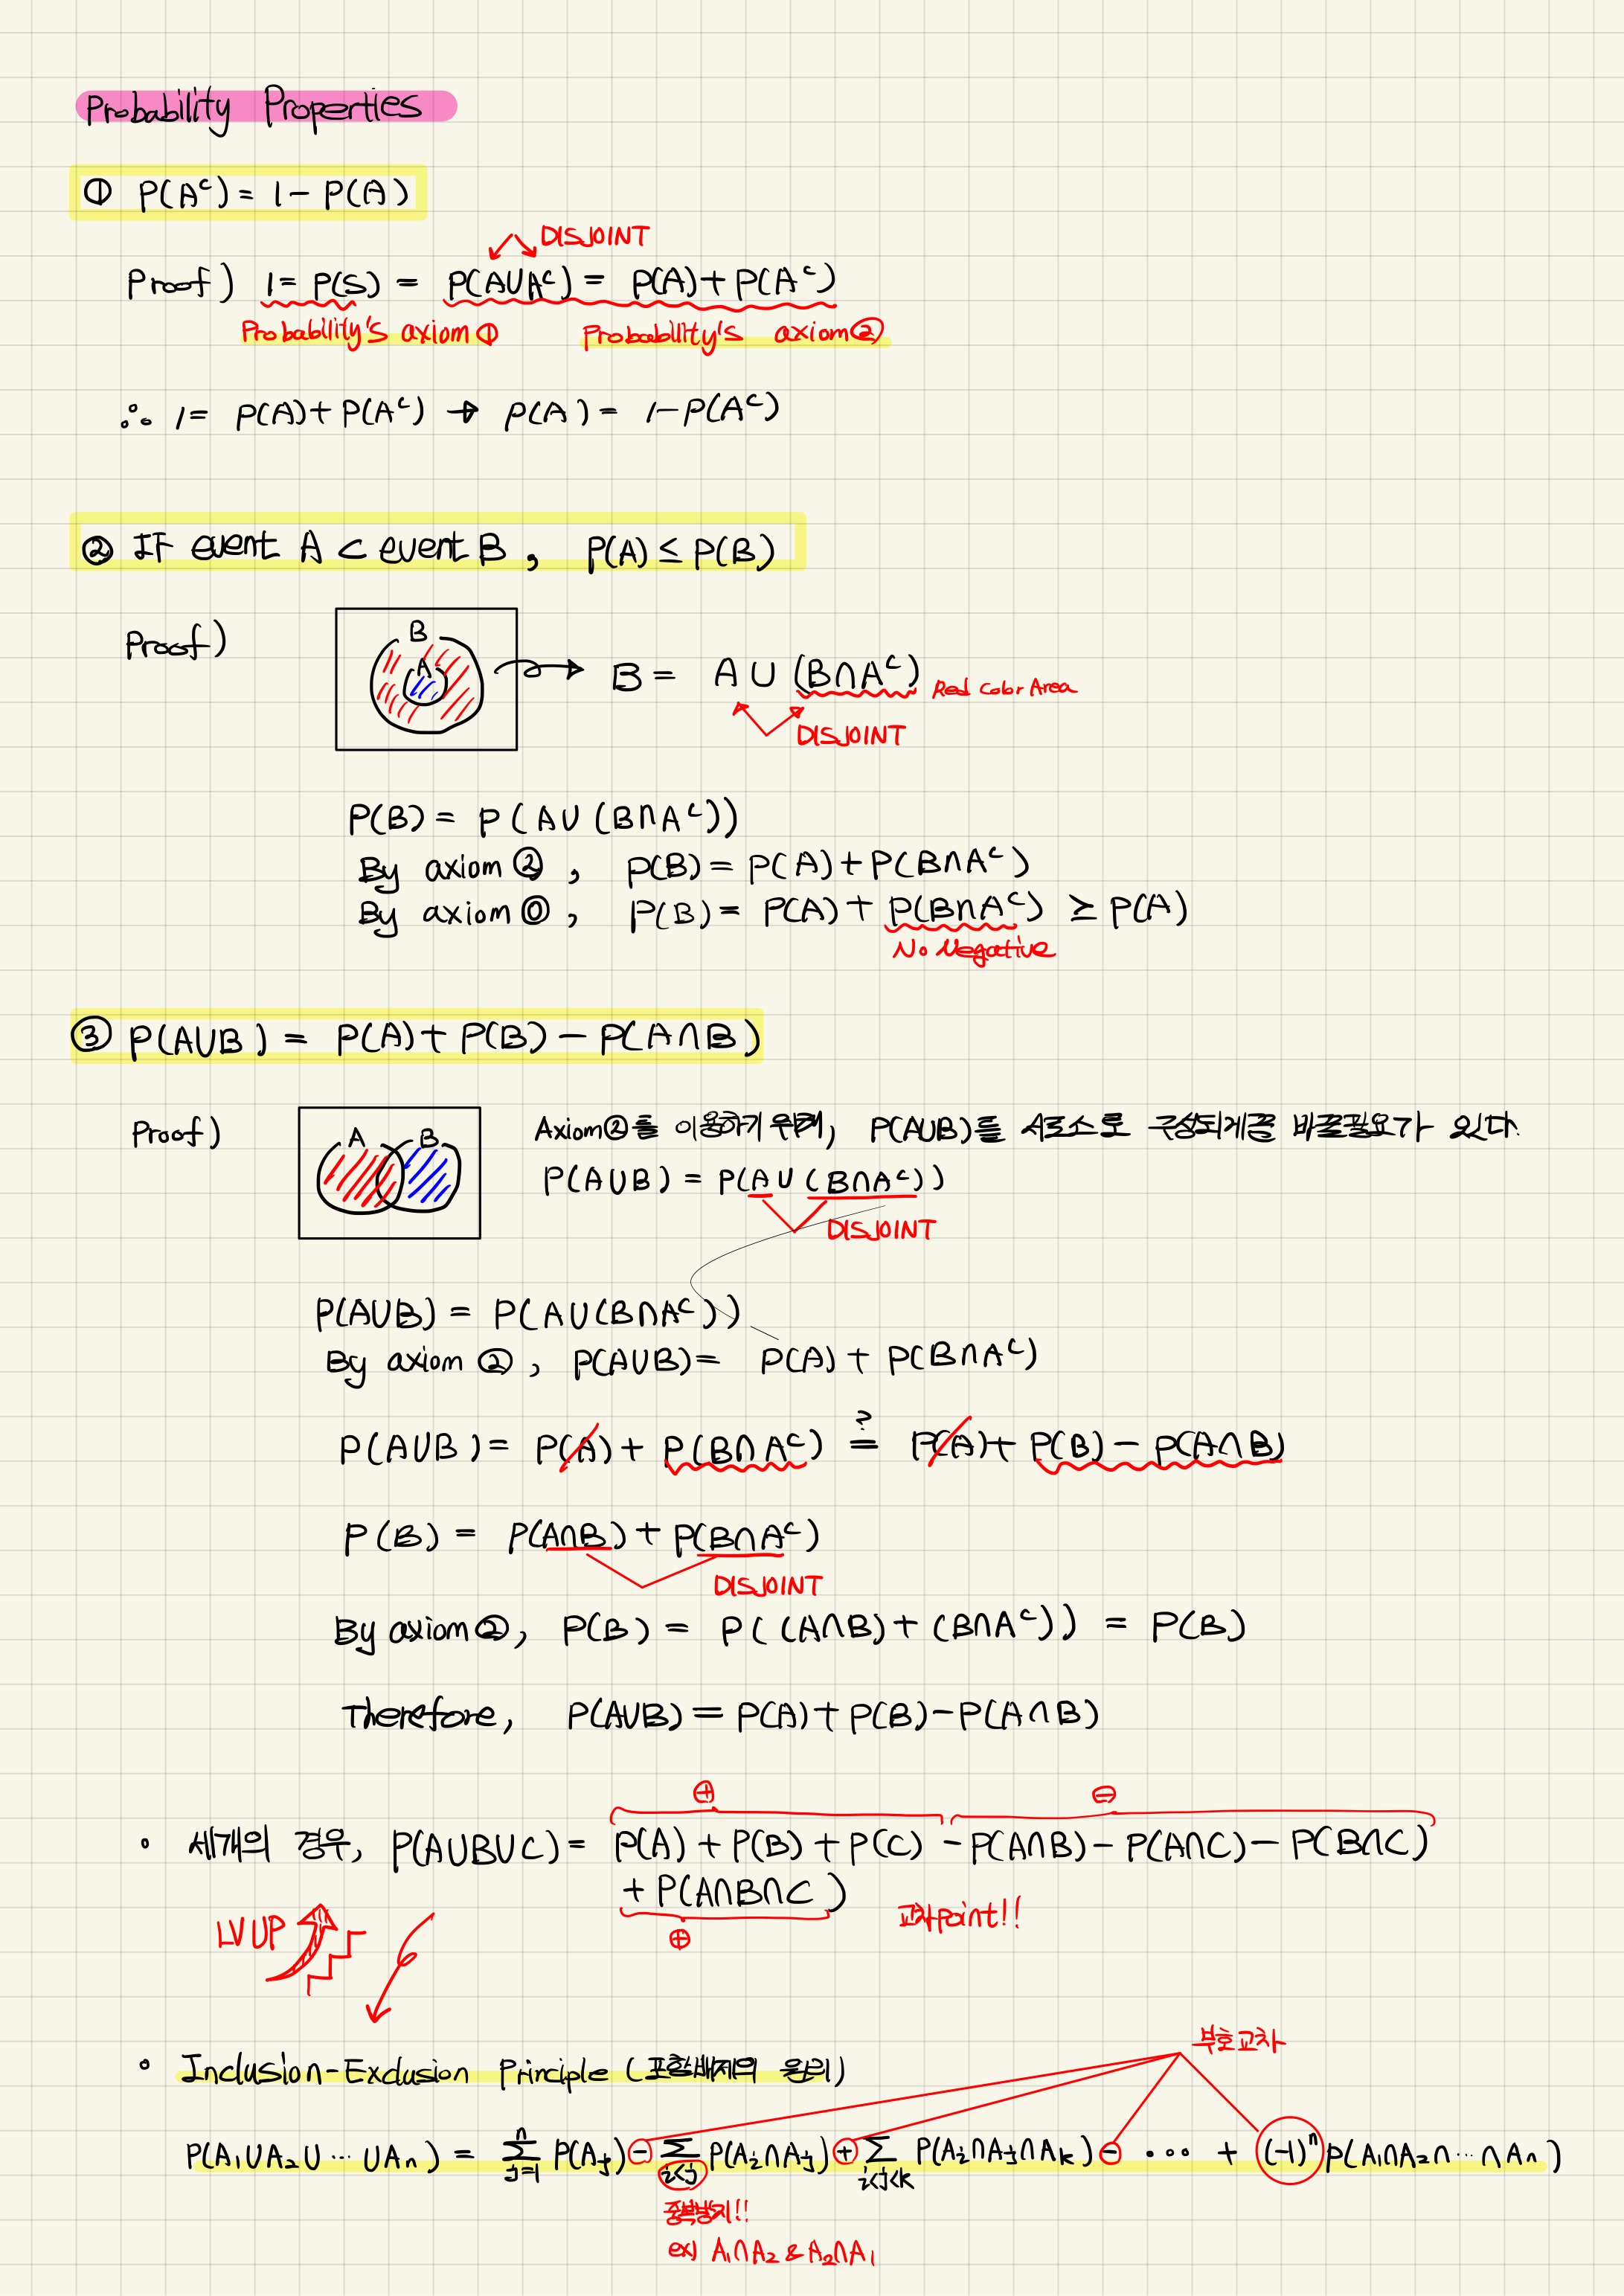 Probability Properties
① P(Aᶜ) = 1 - P(A)
DISJOINT
Proof) 1 = P(S) = P(A∪Aᶜ) = P(A) + P(Aᶜ)
Probability's axiom① Probability's axiom②
∴ 1 = P(A) + P(Aᶜ) → P(A) = 1 - P(Aᶜ)
② IF event A ⊂ event B, P(A) ≤ P(B)
Proof)
B
A
B = A ∪ (B∩Aᶜ) Red Color Area
DISJOINT
P(B) = P(A∪(B∩Aᶜ))
By axiom②, P(B) = P(A) + P(B∩Aᶜ)
By axiom⓪, P(B) = P(A) + P(B∩Aᶜ) ≥ P(A)
No Negative
③ P(A∪B) = P(A) + P(B) - P(A∩B)
Proof)
A B
Axiom②를 이용하기 위해, P(A∪B)를 서로소로 구성되게끔 바꿀필요가 있다.
P(A∪B) = P(A∪(B∩Aᶜ))
DISJOINT
P(A∪B) = P(A∪(B∩Aᶜ))
By axiom②, P(A∪B) = P(A) + P(B∩Aᶜ)
?
P(A∪B) = P(A) + P(B∩Aᶜ) = P(A) + P(B) - P(A∩B)
P(B) = P(A∩B) + P(B∩Aᶜ)
DISJOINT
By axiom②, P(B) = P((A∩B) + (B∩Aᶜ)) = P(B)
Therefore, P(A∪B) = P(A) + P(B) - P(A∩B)
⊕ ⊖
◦ 세개의 경우, P(A∪B∪C) = P(A) + P(B) + P(C) - P(A∩B) - P(A∩C) - P(B∩C)
+ P(A∩B∩C)
⊕
교차point!!
LV UP
부호교차
◦ Inclusion-Exclusion Principle (포함배제의 원리)
P(A₁∪A₂∪⋯∪Aₙ) = ∑ⁿⱼ₌₁ P(Aⱼ) - ∑ i<j P(Aᵢ∩Aⱼ) + ∑ i<j<k P(Aᵢ∩Aⱼ∩Aₖ) - ⋯ + (-1)ⁿ P(A₁∩A₂∩⋯∩Aₙ)
중복방지!!
ex) A₁∩A₂ & A₂∩A₁